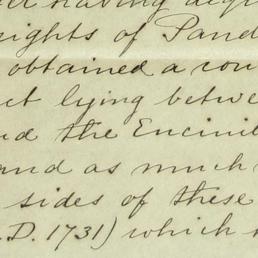 rights of Pand
obtained a cou
ct lying betwe
nd the Encinit
and as much
sides of these
.D. 1731) which